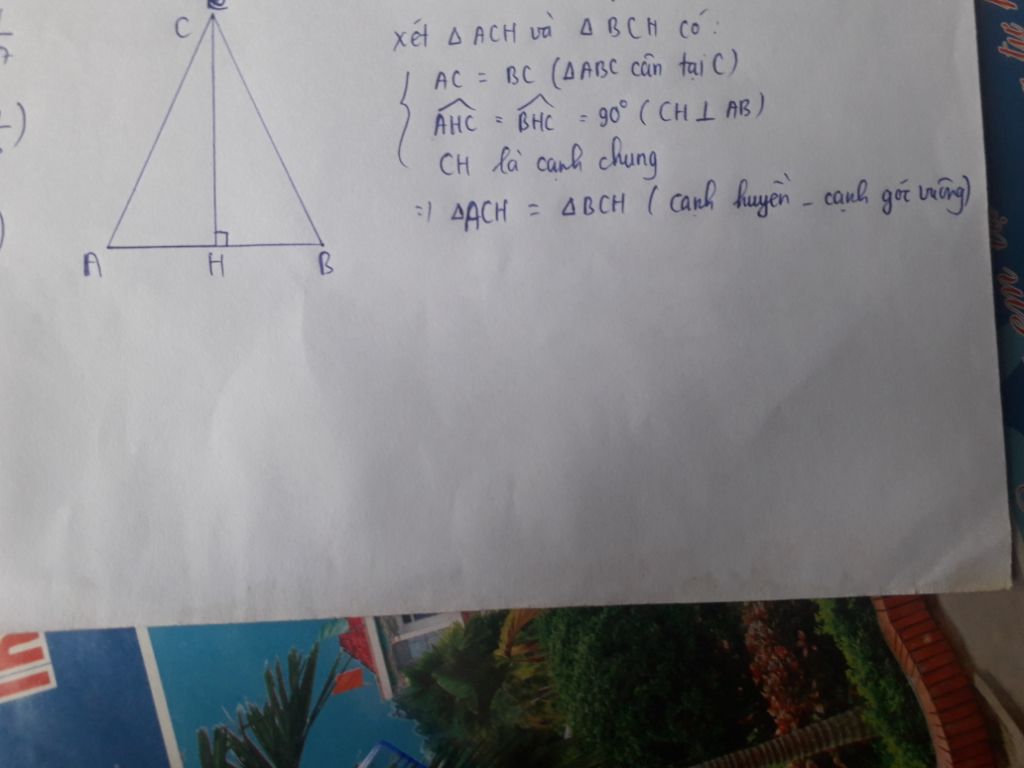 C
xét Δ ACH và Δ BCH có:
AC = BC (ΔABC cân tại C)
AHC = BHC = 90° (CH⊥ AB)
CH là cạnh chung
=) ΔACH = ΔBCH ( cạnh huyền - cạnh góc vuông)
A H B